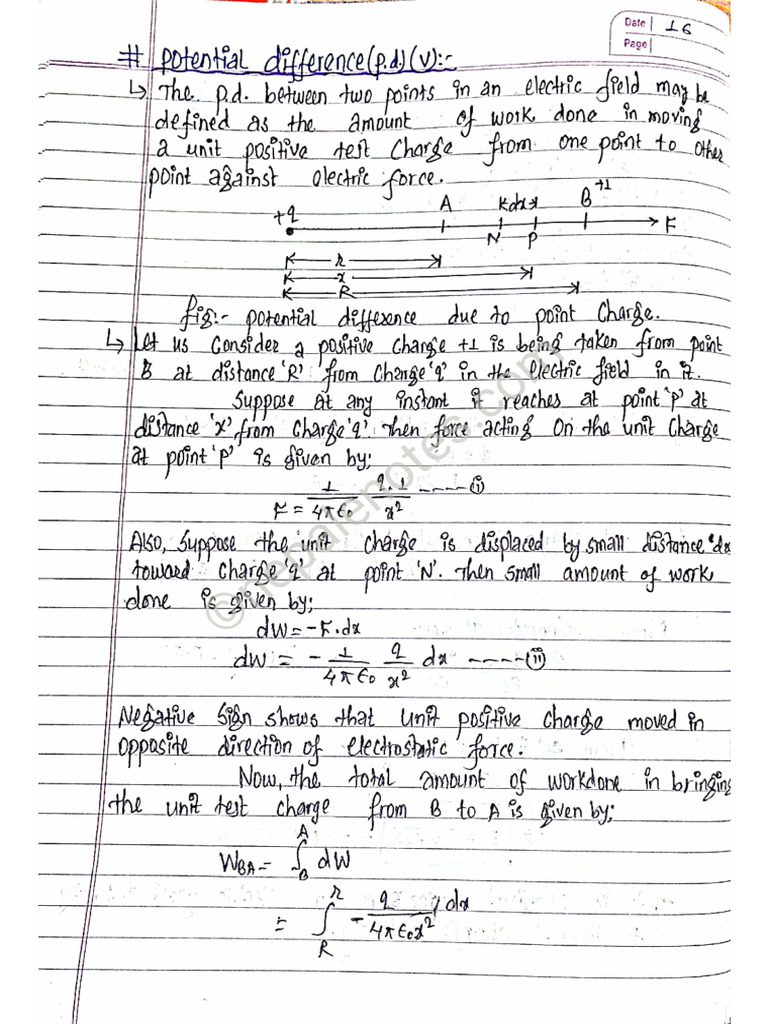 Date 16
Page
# Potential difference (p.d.) (V):-
↳ The p.d. between two points in an electric field may be
defined as the amount of work done in moving
a unit positive test charge from one point to other
point against electric force.
+q A K dx x B +1
N P F
r
x
R
fig:- potential difference due to point charge.
↳ Let us consider a positive charge +1 is being taken from point
B at distance 'R' from charge 'q' in the electric field in it.
Suppose at any instant it reaches at point 'p' at
distance 'x' from charge 'q'. Then force acting on the unit charge
at point 'p' is given by;
F = 1/4πε₀ q.1/x² ----- (i)
Also, suppose the unit charge is displaced by small distance 'dx
toward charge 'q' at point 'N'. Then small amount of work
done is given by;
dW = -F.dx
dW = - 1/4πε₀ q/x² dx ----- (ii)
Negative sign shows that unit positive charge moved in
opposite direction of electrostatic force.
Now, the total amount of workdone in bringing
the unit test charge from B to A is given by;
W_BA = ∫_B^A dW
= ∫_R^r - q/4πε₀x² dx
©nepalenotes.com